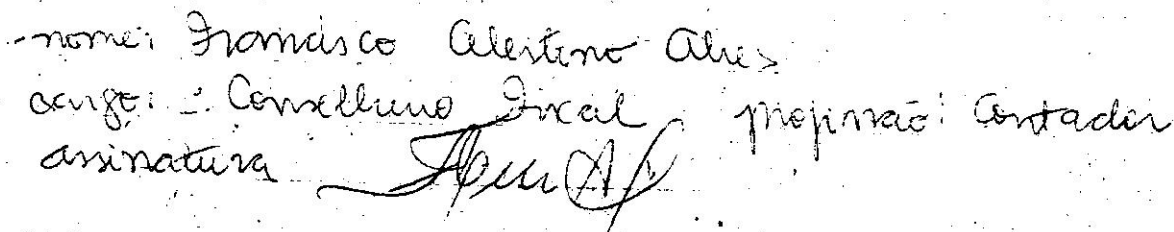 nome: Francisco Celestino Alves
cargo: Conselheiro Fiscal profissão: Contador
assinatura